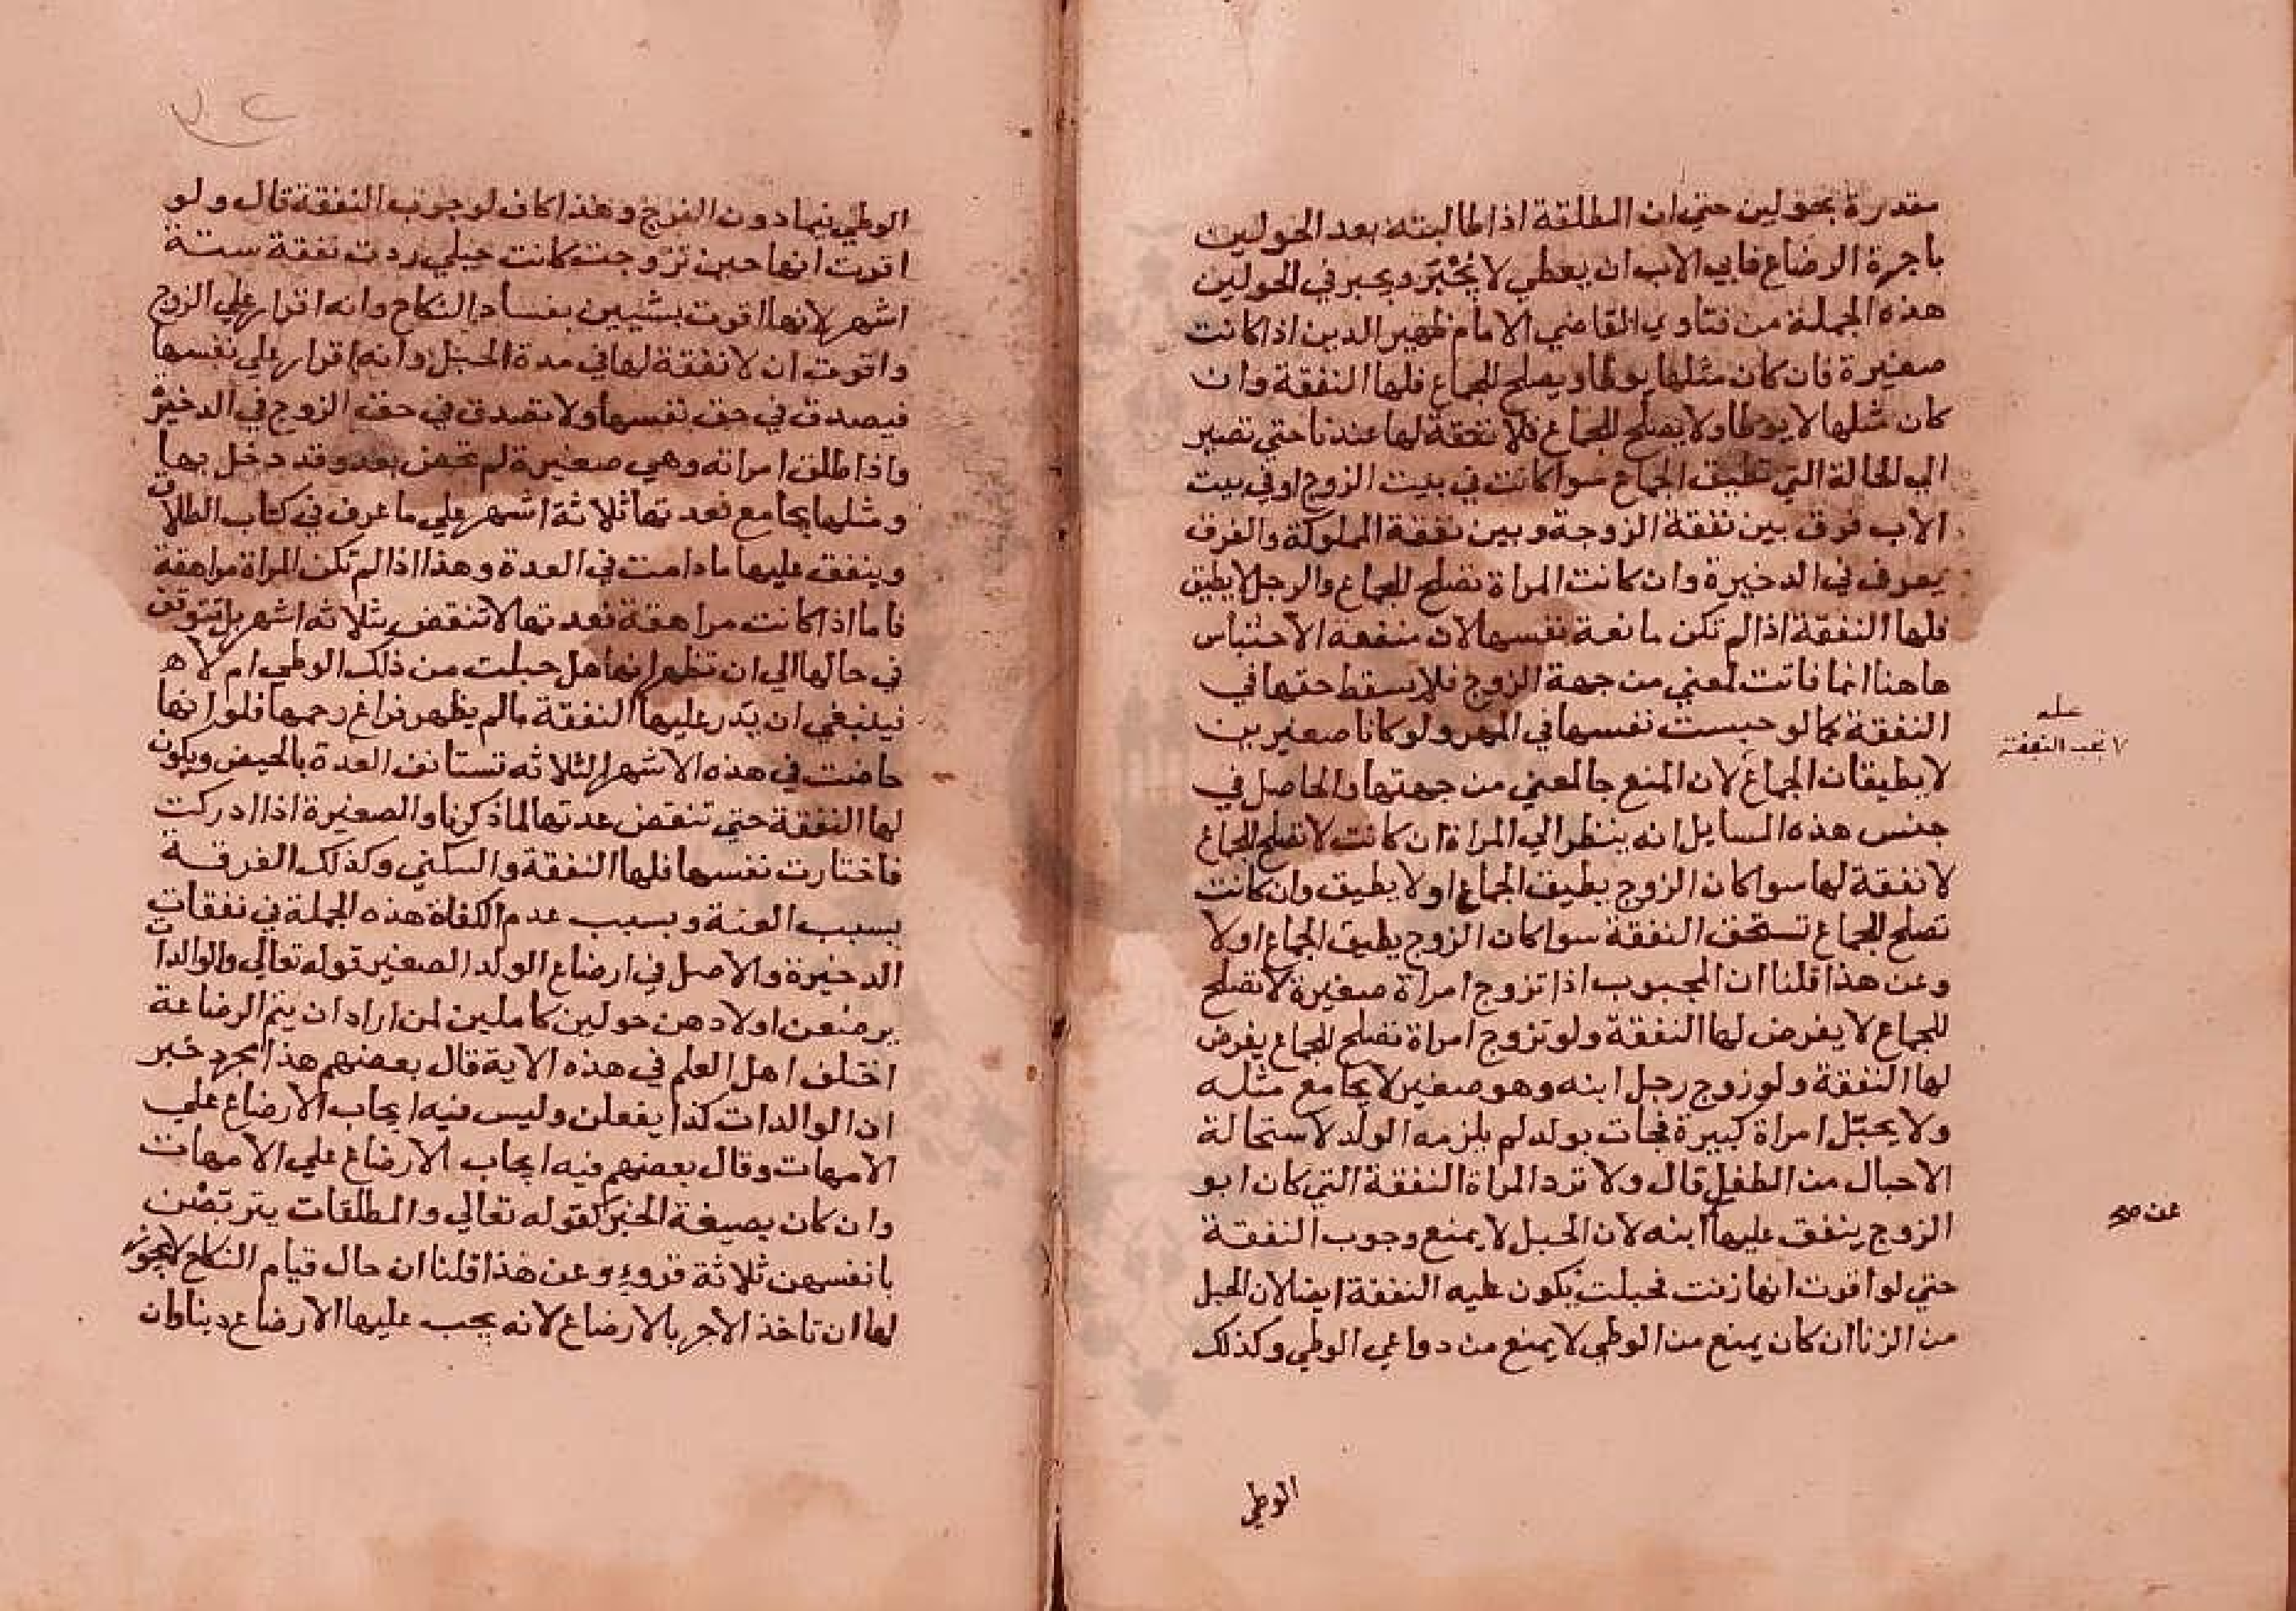 مقدرة بحولين حتي ان المطلقة اذا طالبته بعد الحولين
باجرة الرضاع فابي الاب ان يعطي لا يُجْبَر ويجبر في الحولين
هذه الجملة من فتاوي القاضي الامام ظهير الدين اذا كانت
صغيرة فان كان مثلها يوطا ويصلح للجماع فلها النفقة وان
كان مثلها لا يوطا ولا يصلح للجماع فلا نفقة لها عندنا حتي تصير
الي الحالة التي تطيق الجماع سوا كانت في بيت الزوج او في بيت
الاب فرق بين نفقة الزوجة وبين نفقة المملوكة والفرق
يعرف في الدخيرة وان كانت المراة تصلح للجماع والرجل لا يطيق
فلها النفقة اذا لم تكن مانعة نفسها لان منفعه الاحتباس
هاهنا انما فاتت لمعني من جهة الزوج فلا يسقط حقها في
النفقة كما لو حبست نفسها في المهر ولو كانا صغيرين
لا يطيقان الجماع لان المنع جا لمعني من جهتها والحاصل في
علـه
لا تجب النفقة
جنس هذه المسايل انه ينظر الي المراة ان كانت لا تصلح للجماع
لا نفقة لها سوا كان الزوج يطيق الجماع او لا يطيق وان كانت
تصلح للجماع تستحق النفقة سوا كان الزوج يطيق الجماع او لا
وعن هذا قلنا ان المجبوب اذا تزوج امراة صغيرة لا تصلح
للجماع لا يفرض لها النفقة ولو تزوج امراة تصلح للجماع يفرض
لها النفقة ولو زوج رجل ابنه وهو صغير لا يجامع مثله
ولا يحبّل امراة كبيرة فجات بولد لم يلزمه الولد لاستحالة
الاحبال من الطفل قال ولا ترد المراة النفقة التي كان ابو
الزوج ينفق عليها ابنه لان الحبل لا يمنع وجوب النفقة
عن صح
حتي لو اقرت انها زنت فحبلت يكون عليه النفقة ايضا لان الحبل
من الزنا ان كان يمنع من الوطي لا يمنع من دواعي الوطي وكذلك
الوطي
الوطي فيما دون الفرج وهذا كاف لوجوب النفقة قال ولو
اقرت انها حين تزوجت كانت حبلي ردت نفقة ستة
اشهر لانها اقرت بشيين بفساد النكاح وانه اقرار علي الزوج
واقرت ان لا نفقة لها في مدة الحبل وانه اقرار علي نفسها
فيصدق في حق نفسها ولا تصدق في حق الزوج في الدخيرة
واذا طلق امراته وهي صغيرة لم تحض بعد وقد دخل بها
ومثلها يجامع فعدتها ثلاثة اشهر علي ما عرف في كتاب الطلاق
وينفق عليها ما دامت في العدة وهذا اذا لم تكن المراة مراهقة
فاما اذا كانت مراهقة فعدتها لا تنقض بثلاثه اشهر بل تتوقف
في حالها الي ان تظهر انها هل حبلت من ذلك الوطي ام لا ه
فينبغي ان يدر عليها النفقة ما لم يظهر فراغ رحمها فلو انها
حاضت في هذه الاشهر الثلاثه تستانف العدة بالحيض ويكون
لها النفقة حتي تنقض عدتها لما ذكرنا والصغيرة اذا ادركت
فاختارت نفسها فلها النفقة والسكني وكذلك الفرقة
بسبب العنة وبسبب عدم الكفاة هذه الجملة في نفقات
الدخيرة والاصل في ارضاع الولد الصغير قوله تعالي والوالدات
يرضعن اولادهن حولين كاملين لمن اراد ان يتم الرضاعة
اختلف اهل العلم في هذه الاية قال بعضهم هذا مجرد خبر
ان الوالدات كذا يفعلن وليس فيه ايجاب الارضاع علي
الامهات وقال بعضهم فيه ايجاب الارضاع علي الامهات
وان كان بصيغة الخبر كقوله تعالي والمطلقات يتربصْن
بانفسهن ثلاثة قروءٍ وعن هذا قلنا ان حال قيام النكاح لا يجوز
لها ان تاخذ الاجر بالارضاع لانه يجب عليها الارضاع دينا وان